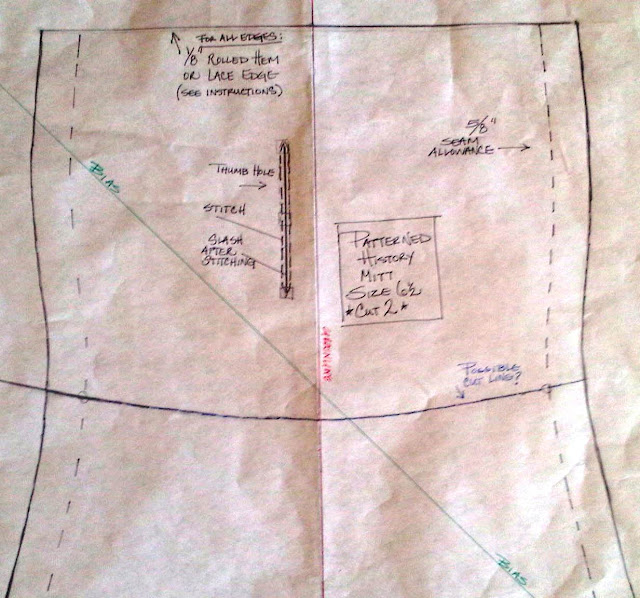 FOR ALL EDGES:
1/8" ROLLED HEM
OR LACE EDGE
(SEE INSTRUCTIONS)
5/8"
SEAM
ALLOWANCE
BIAS
THUMB HOLE
STITCH
SLASH
AFTER
STITCHING
PATTERNED
HISTORY
MITT
SIZE 6½
*CUT 2*
POSSIBLE
CUT LINE?
BIAS